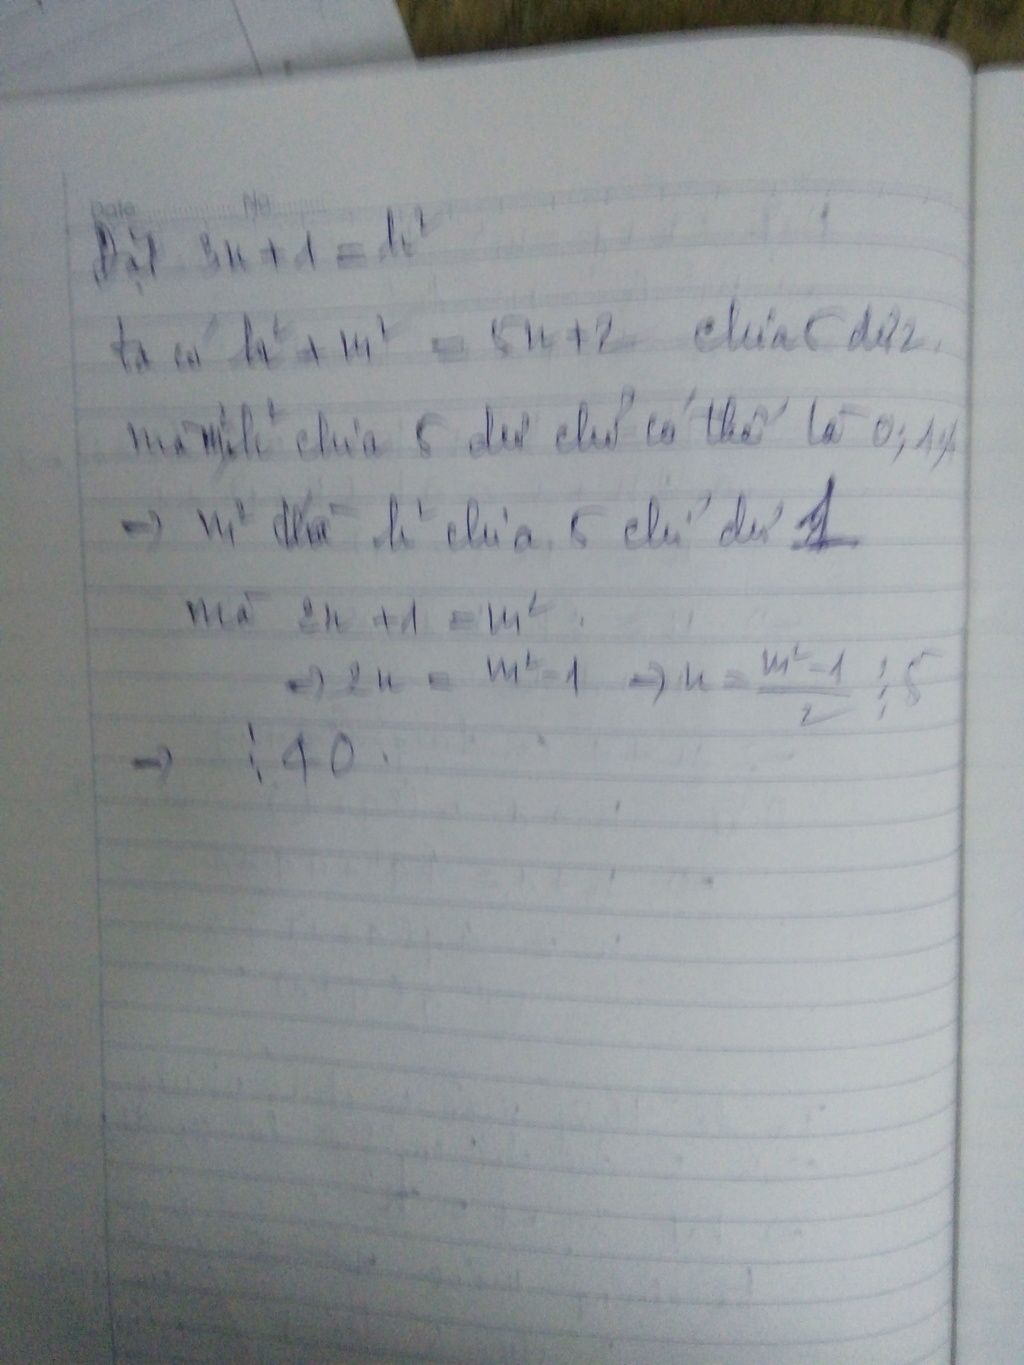 Date No
Đặt 3n+1 = k²
ta có k² + m² = 5n+2 chia 5 dư 2.
mà m²; k² chia 5 dư chỉ có thể là 0; 1; 4
=> m² và k² chia 5 chỉ dư 1
mà 2n +1 = m²
=> 2n = m² - 1 => n = (m² - 1)/2 ⋮ 5
=> ⋮ 40.